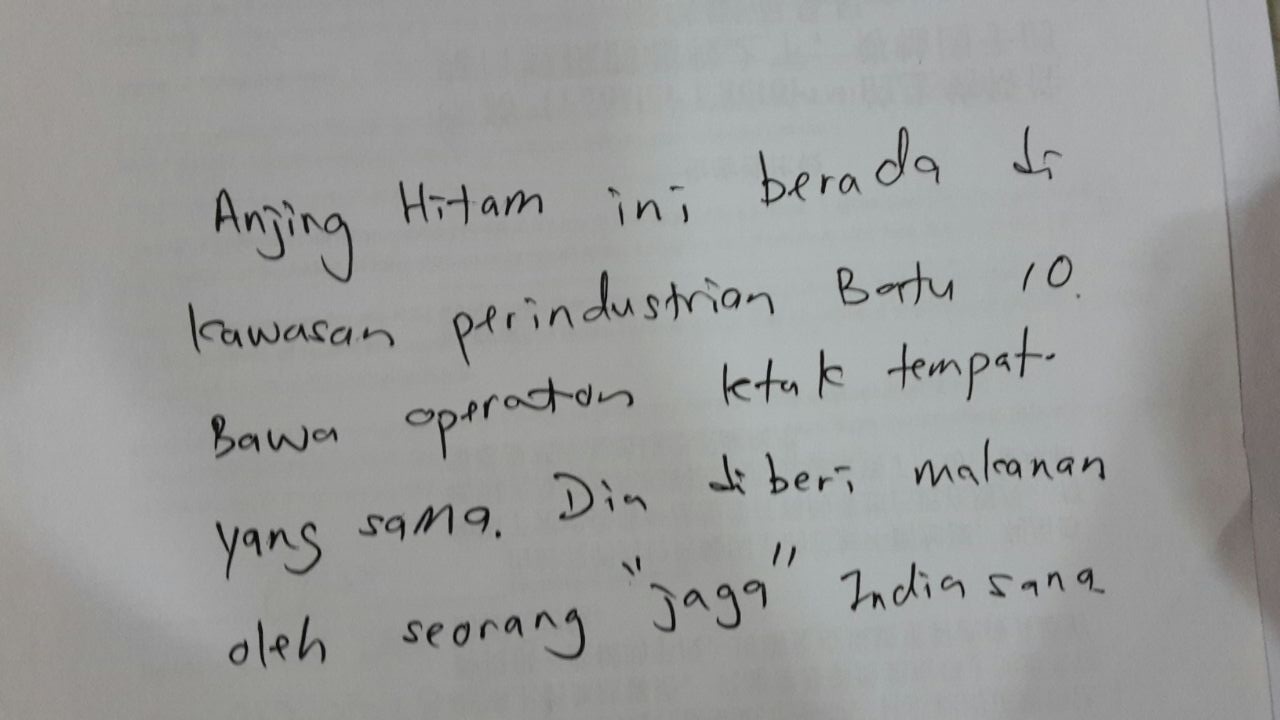 Anjing Hitam ini berada di
kawasan perindustrian Batu 10.
Bawa operaton letak tempat.
yang sama. Dia diberi makanan
oleh seorang "jaga" India sana